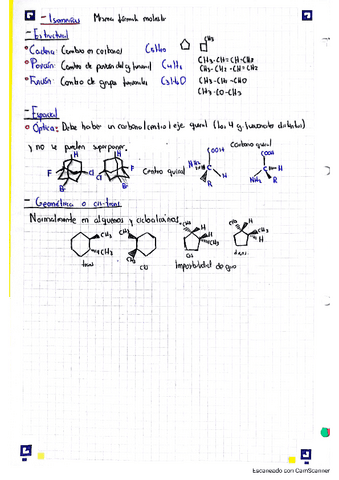 - Isomerías Misma fórmula molecular
- Estructural
• Cadena: Cambio en carbonos C₅H₁₀ CH₃
• Posición: Cambio de posición del g. funcional C₄H₈ CH₃-CH=CH-CH₃
CH₃-CH₂-CH=CH₂
• Función: Cambio de grupo funcional C₃H₆O CH₃-CH₂-CHO
CH₃-CO-CH₃
- Espacial
• Óptica: Debe haber un carbono/centro/eje quiral (los 4 g funcionales distintos)
y no se pueden superponer. Carbono quiral
H H COOH COOH
F Cl Cl F Centro quiral NH₂ C H C H
Br Br R NH₂ R
- Geométrica o cis-trans
Normalmente en alquenos y cicloalcanos.
CH₃ CH₃ CH₃ CH₃ CH₃ H CH₃ H CH₃ H
trans cis cis trans
Imposibilidad de giro
Escaneado con CamScanner